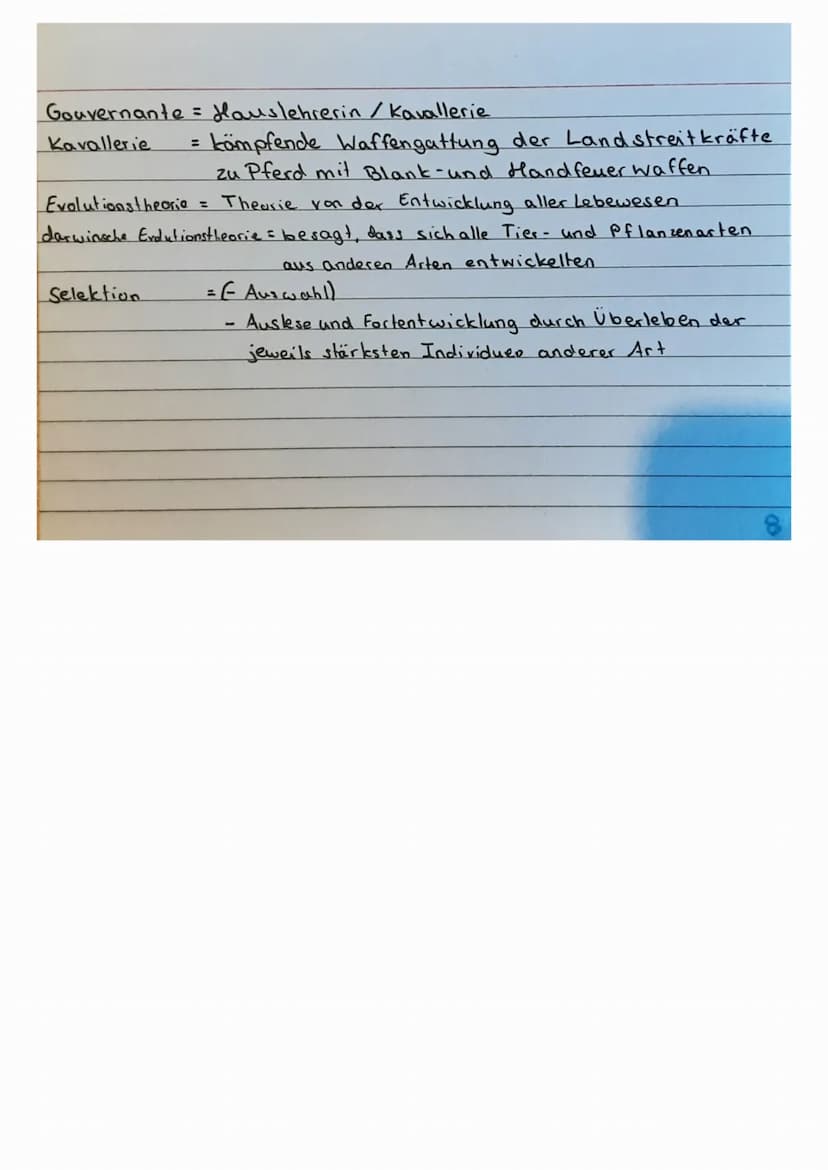 Gouvernante = Hauslehrerin / Kavallerie
Kavallerie = kämpfende Waffengattung der Landstreitkräfte
zu Pferd mit Blank- und Handfeuerwaffen
Evolutionstheorie = Theorie von der Entwicklung aller Lebewesen
darwinsche Evolutionstheorie = besagt, dass sich alle Tier- und Pflanzenarten
aus anderen Arten entwickelten
Selektion = (- Auswahl)
- Auslese und Fortentwicklung durch Überleben der
jeweils stärksten Individuen anderer Art
8